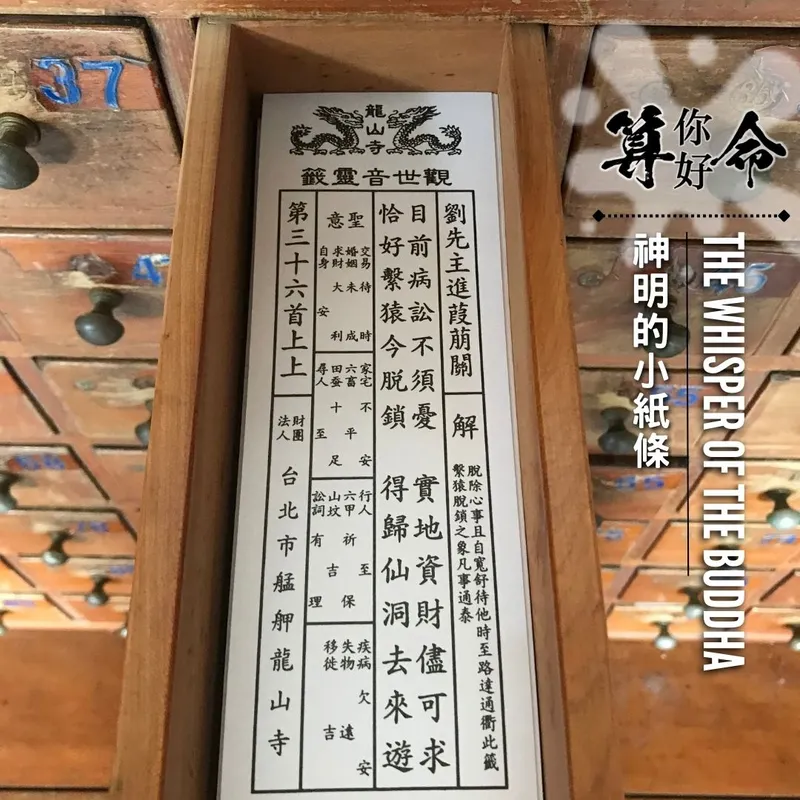 37
龍山寺
觀世音靈籤
劉先主進葭萌關
解
脫除心事且自寬舒待他時至路達通衢此籤
繫猿脫鎖之象凡事通泰
目前病訟不須憂 實地資財儘可求
恰好繫猿今脫鎖 得歸仙洞去來遊
聖意
交易待時
婚姻未成
求財大利
自身安
家宅不安
六畜平
田蚕十足
尋人至
行人至
六甲祈保
山坟吉
訟詞有理
疾病欠安
失物遠
移徙吉
第三十六首上上
財團法人
台北市艋舺龍山寺
算命你好
THE WHISPER OF THE BUDDHA
神明的小紙條